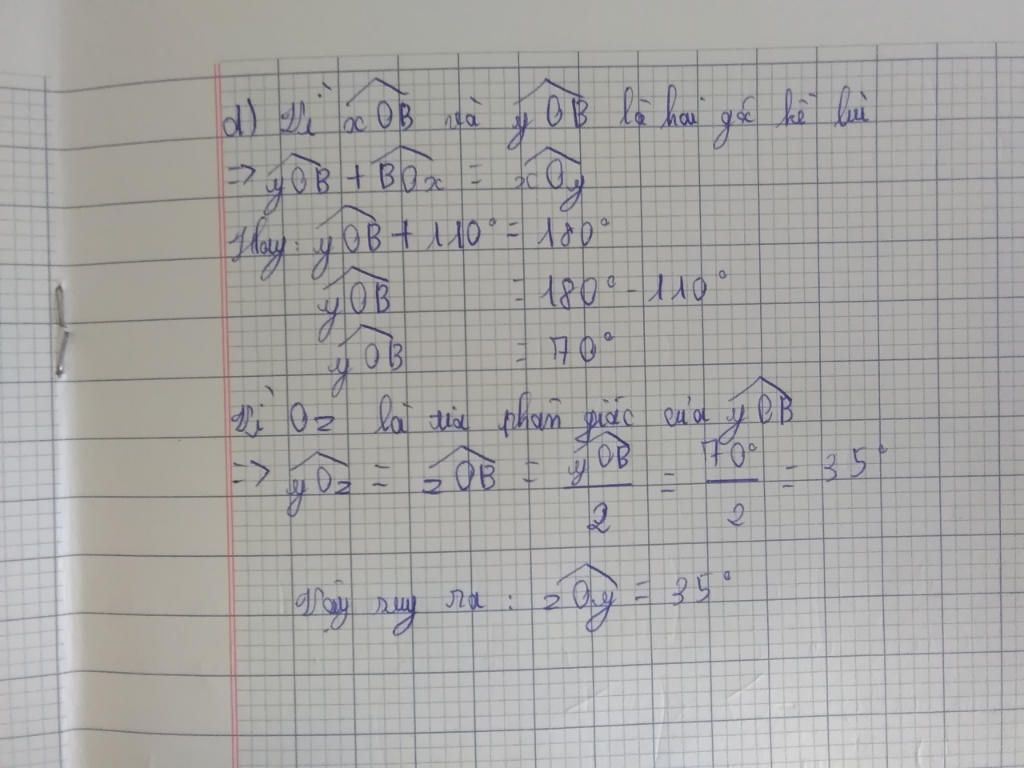 d) Vì xOB và yOB là hai góc kề bù
=> yOB + BOx = xOy
Hay: yOB + 110° = 180°
yOB = 180° - 110°
yOB = 70°
Vì Oz là tia phân giác của yOB
=> yOz = zOB = yOB/2 = 70°/2 = 35°
Vậy suy ra : zOy = 35°